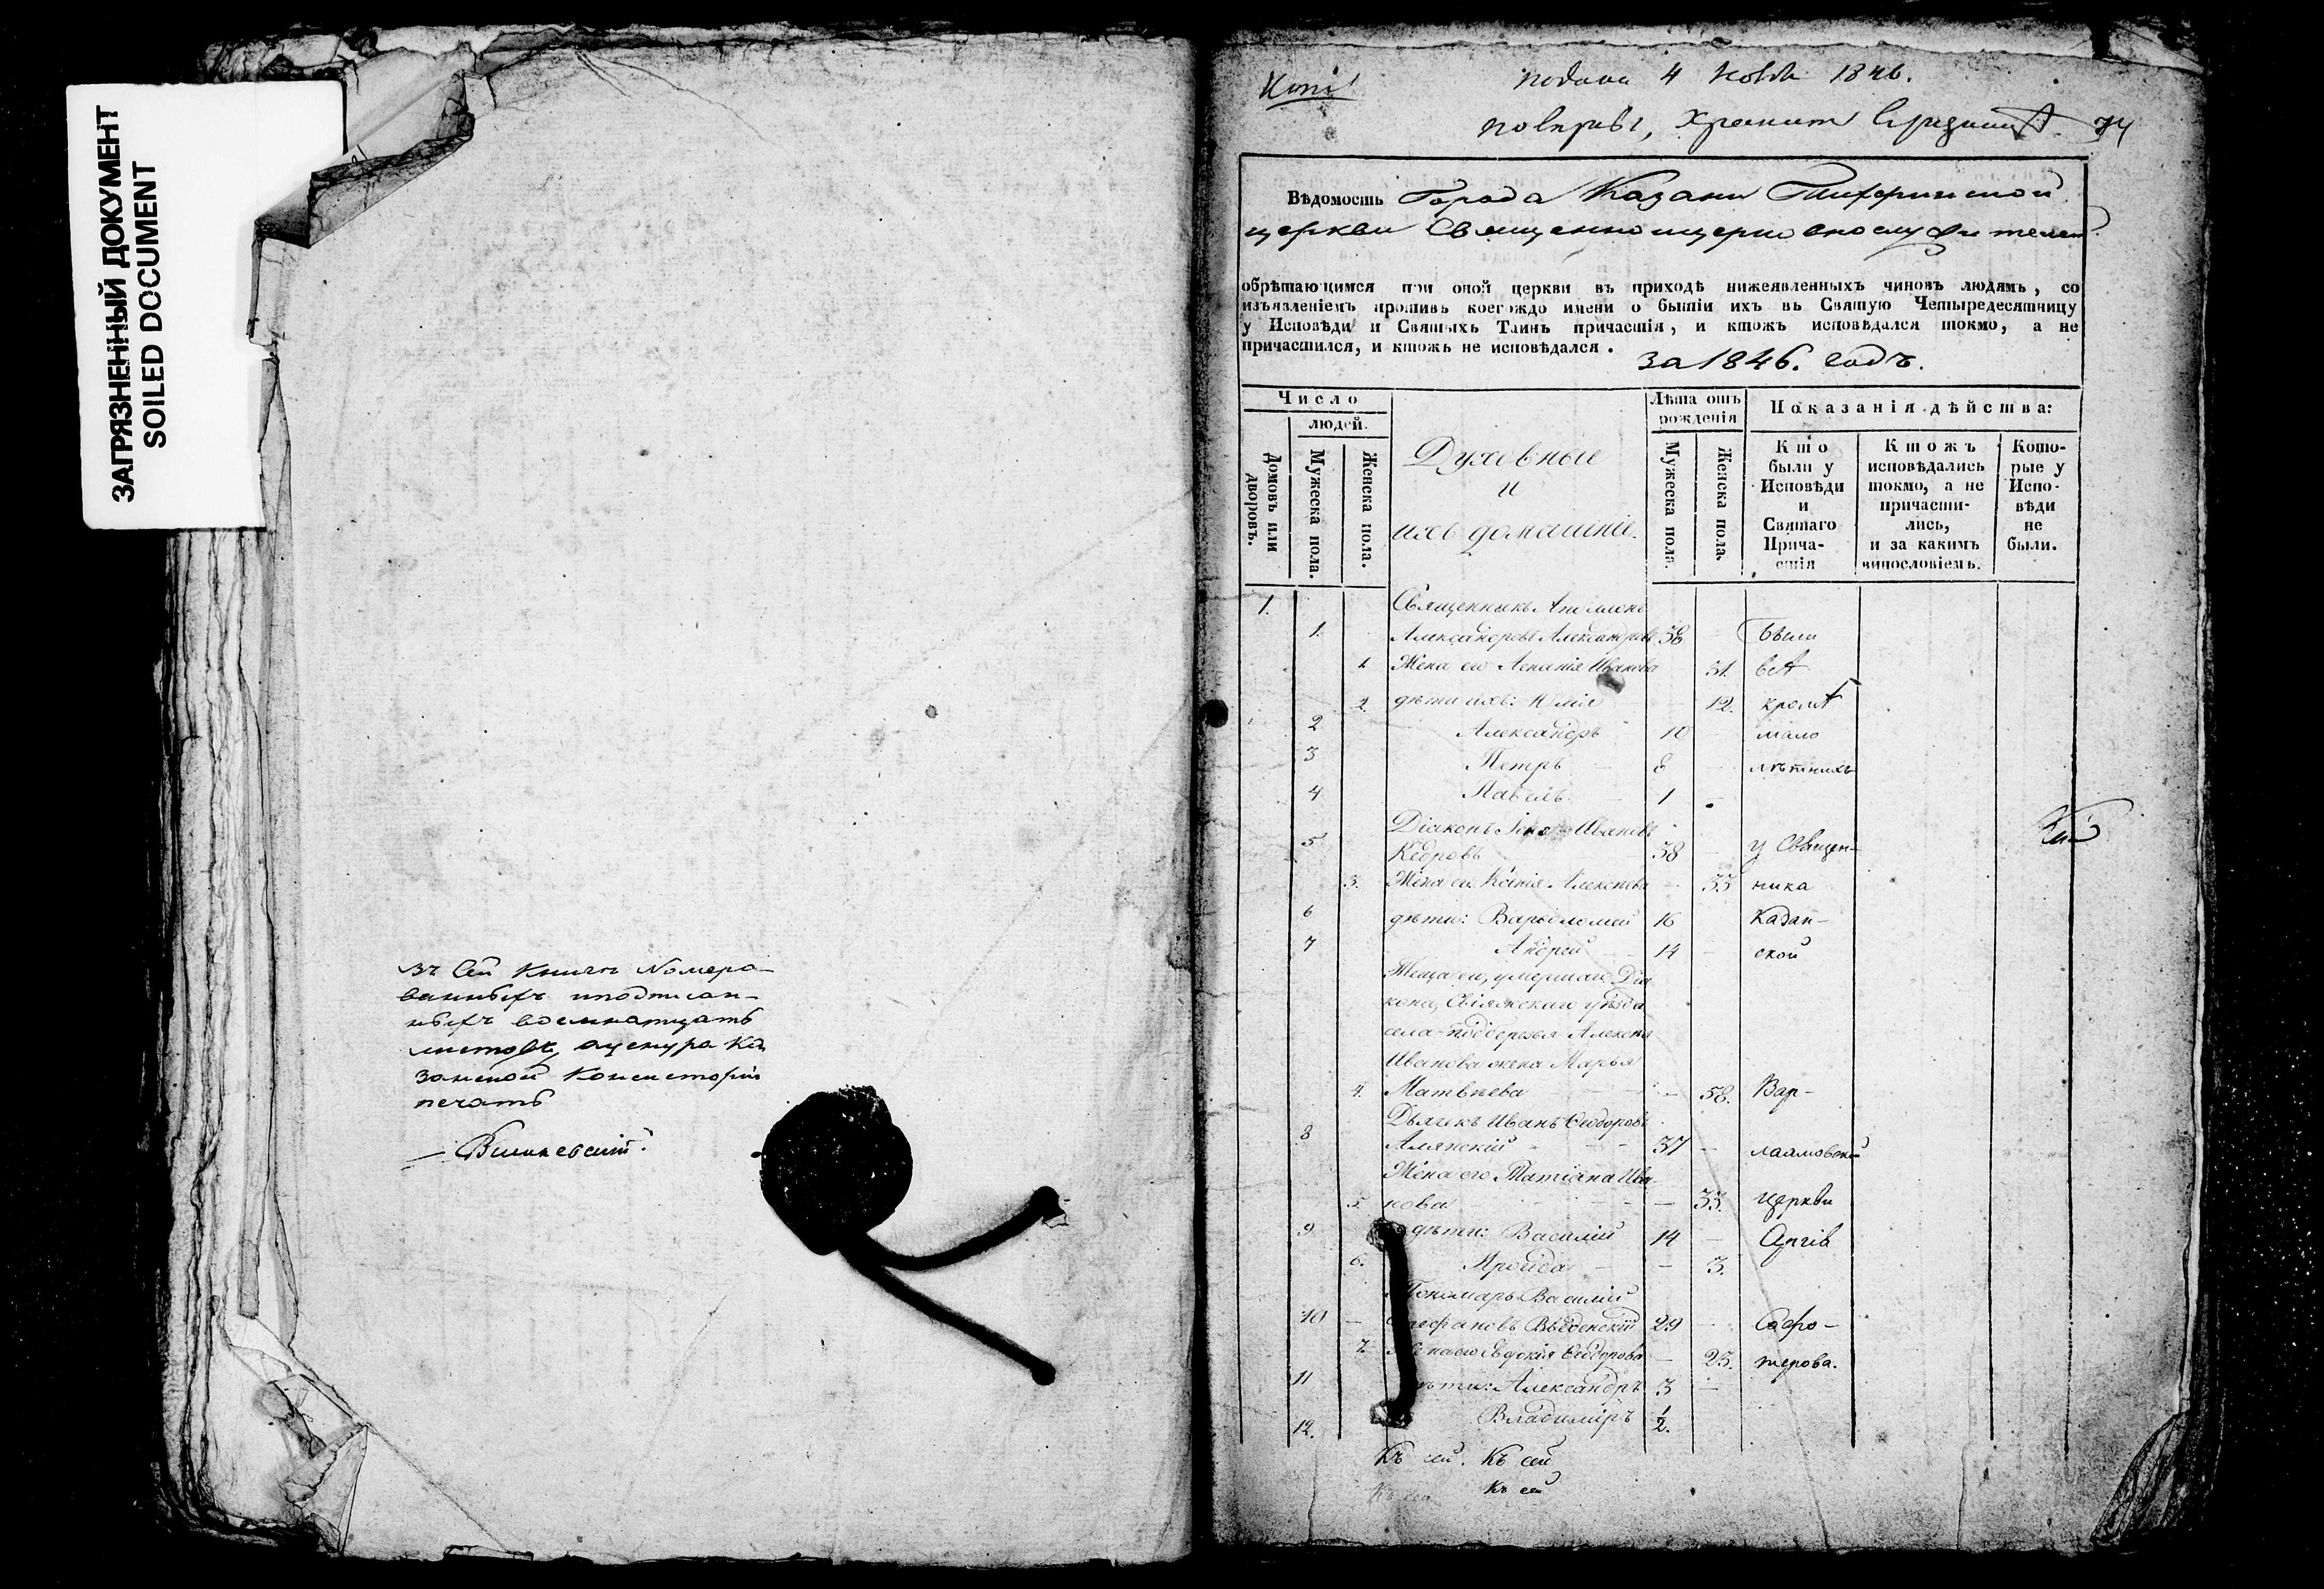 ЗАГРЯЗНЕННЫЙ ДОКУМЕНТ
SOILED DOCUMENT
въ сей книгѣ номеро-
ванныхъ и подписан-
ныхъ восемнатцать
листовъ,
занской Консисторіи
печать
подана 4 1846.
74
Вѣдомость Города Казани Тихвинской
церкви Священноцерковнослужителей
обрѣтающимся при оной церкви въ приходѣ нижеявленныхъ чиновъ людямъ, со
изъявленіемъ противъ коегождо имени о бытіи ихъ въ Святую Четыредесятницу
у Исповѣди и Святыхъ Таинъ причастія, и ктожъ исповѣдался токмо, а не
причастился, и ктожъ не исповѣдался.
за 1846. годъ.
Число
людей.
Домовъ или дворовъ.
Мужеска пола.
Женска пола.
Духовные
и
ихъ домашніе.
Лѣта отъ рожденія
Мужеска пола.
Женска пола.
Показанія дѣйства:
Кто были у Исповѣди и Святаго Прича- стія
Ктожъ исповѣдались токмо, а не причасти- лись, и за какимъ винословіемъ.
Кото- рые у Испо- вѣди не были.
1. Священникъ
1. Александровъ Александровъ 38 Были
1. Жена его Иванова 31. всѣ
2. дѣти ихъ: Юлія 12. кромѣ
2 Александръ 10 мало
3 Петръ 8 лѣтнихъ
4 Павелъ 1
Діаконъ Ивановъ
5 Кедровъ 38 у Священ-
3. Жена его Ксенія Алексѣева 33 ника
6 дѣти: Варѳоломей 16 Казан-
7 Андрей 14 ской
Теща его, умершаго Діа
кона, Свіяжскаго уѣзда
села Алексѣя
Иванова жена Марья
4. Матвѣева 58. Вар-
Дьячекъ Иванъ Ѳеодоровъ
8 Алянскій 37 лаамовской
Жена его Татіана Ива
5. нова 33. церкви
9 дѣти: Василій 14
6. 3.
Пономарь Василій
10 Стефановъ Введенскій 29 Софо-
7. Жена его Евдокія Ѳеодорова 25. терова.
11 дѣти: Александръ 3
12. Владиміръ 1/2.
Къ сей. Къ сей
Къ сей Къ сей